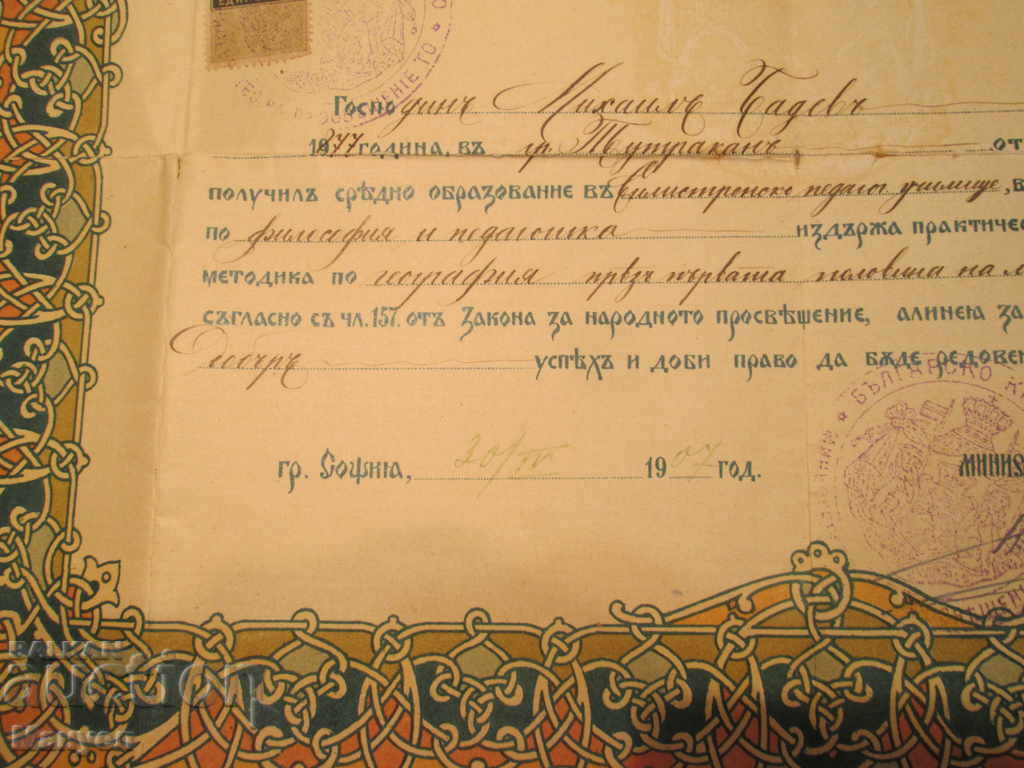 Господинъ Михаилъ Бадевъ
1877 година, въ гр. Тутраканъ, от
получилъ срѣдно образование въ Силистренско педагог. училище, в
по философия и педагогика издържа практичес
методика по география презъ първата половина на
съгласно съ чл. 157. отъ Закона за народното просвѣщение, алинея за
Добъръ успѣхъ и доби право да бѫде редовен
гр. София, 20/IV 1907 год.
Минис
БЪЛГАРСКО
BALKAN
auction